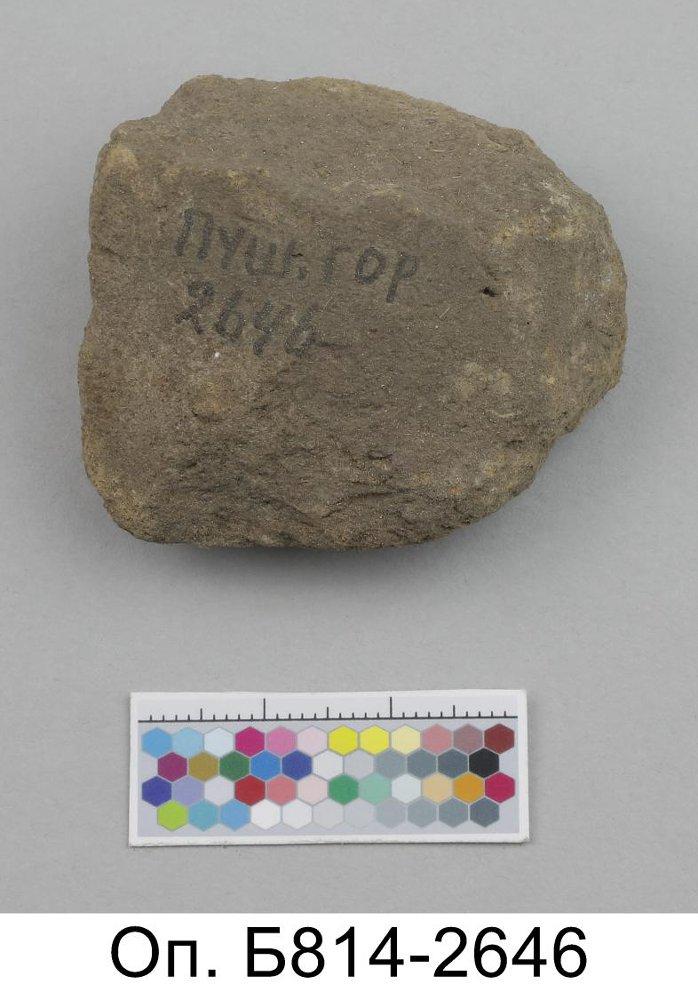 Пушк. гор
2646
Оп. Б814-2646